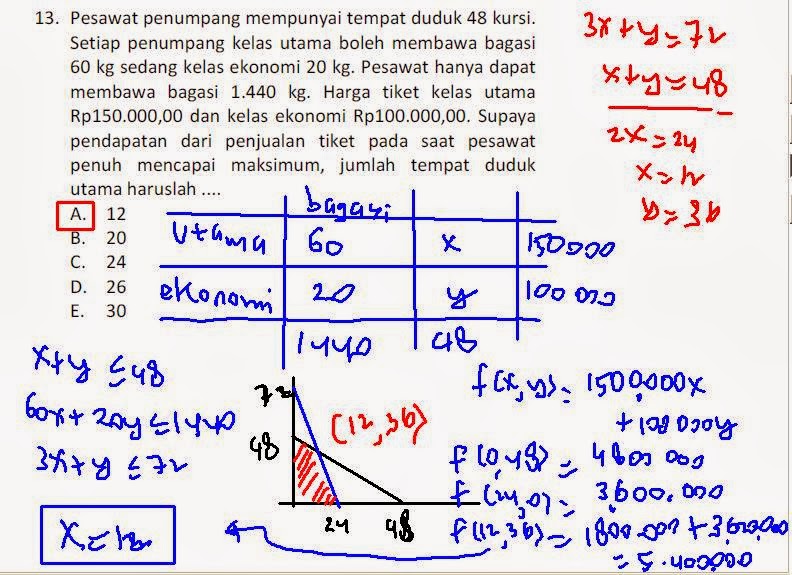 13. Pesawat penumpang mempunyai tempat duduk 48 kursi.
Setiap penumpang kelas utama boleh membawa bagasi
60 kg sedang kelas ekonomi 20 kg. Pesawat hanya dapat
membawa bagasi 1.440 kg. Harga tiket kelas utama
Rp150.000,00 dan kelas ekonomi Rp100.000,00. Supaya
pendapatan dari penjualan tiket pada saat pesawat
penuh mencapai maksimum, jumlah tempat duduk
utama haruslah ....
A. 12
B. 20
C. 24
D. 26
E. 30
3x+y=72
x+y=48
2x=24
x=12
y=36
bagasi
Utama 60 x 150000
ekonomi 20 y 100 000
1440 48
x+y ≤ 48
60x+20y ≤ 1440
3x+y ≤ 72
x=12
72
48
(12,36)
24 48
f(x,y)= 1500.000x
+100 000y
f(0,48)= 4800 000
f(24,0)= 3.600.000
f(12,36)= 1800.000+3.600.000
=5.400000